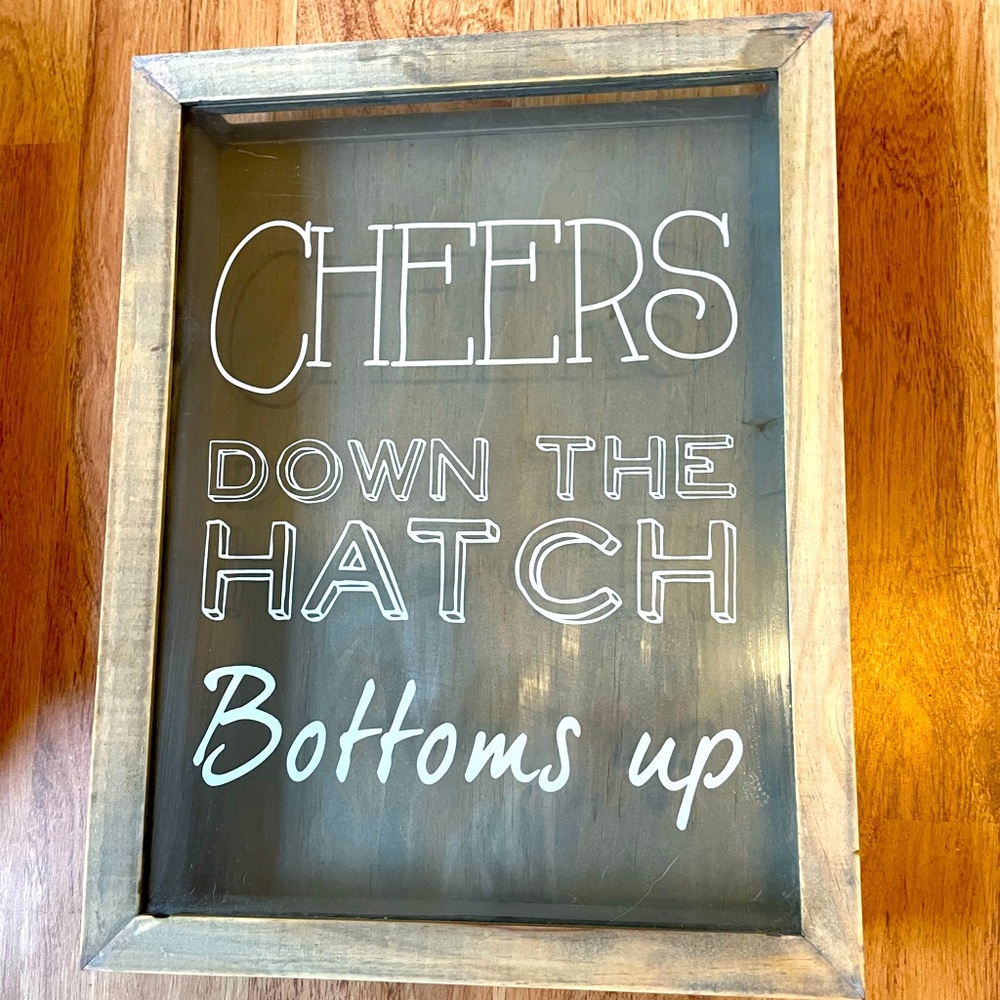 CHEERS
DOWN THE
HATCH
Bottoms up